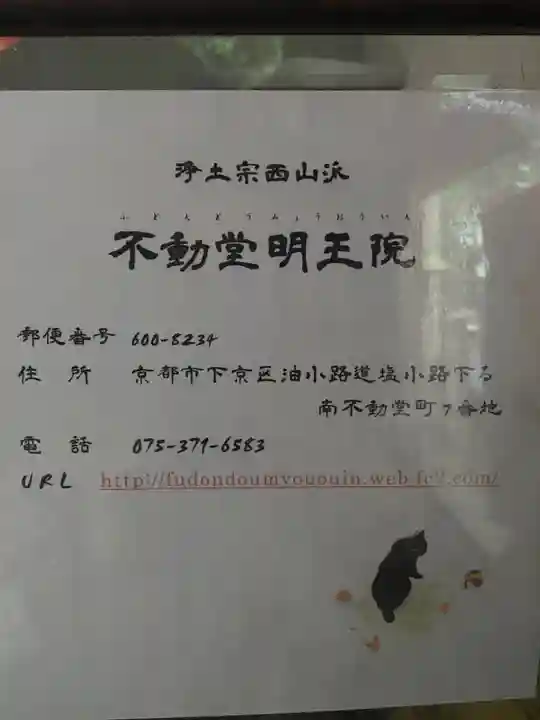 浄土宗西山派
ふどんどうみょうおういん
不動堂明王院
郵便番号 600-8234
住 所 京都市下京区油小路道塩小路下る
南不動堂町7番地
電 話 075-371-6583
URL http://fudondoumyououin.web.fc2.com/